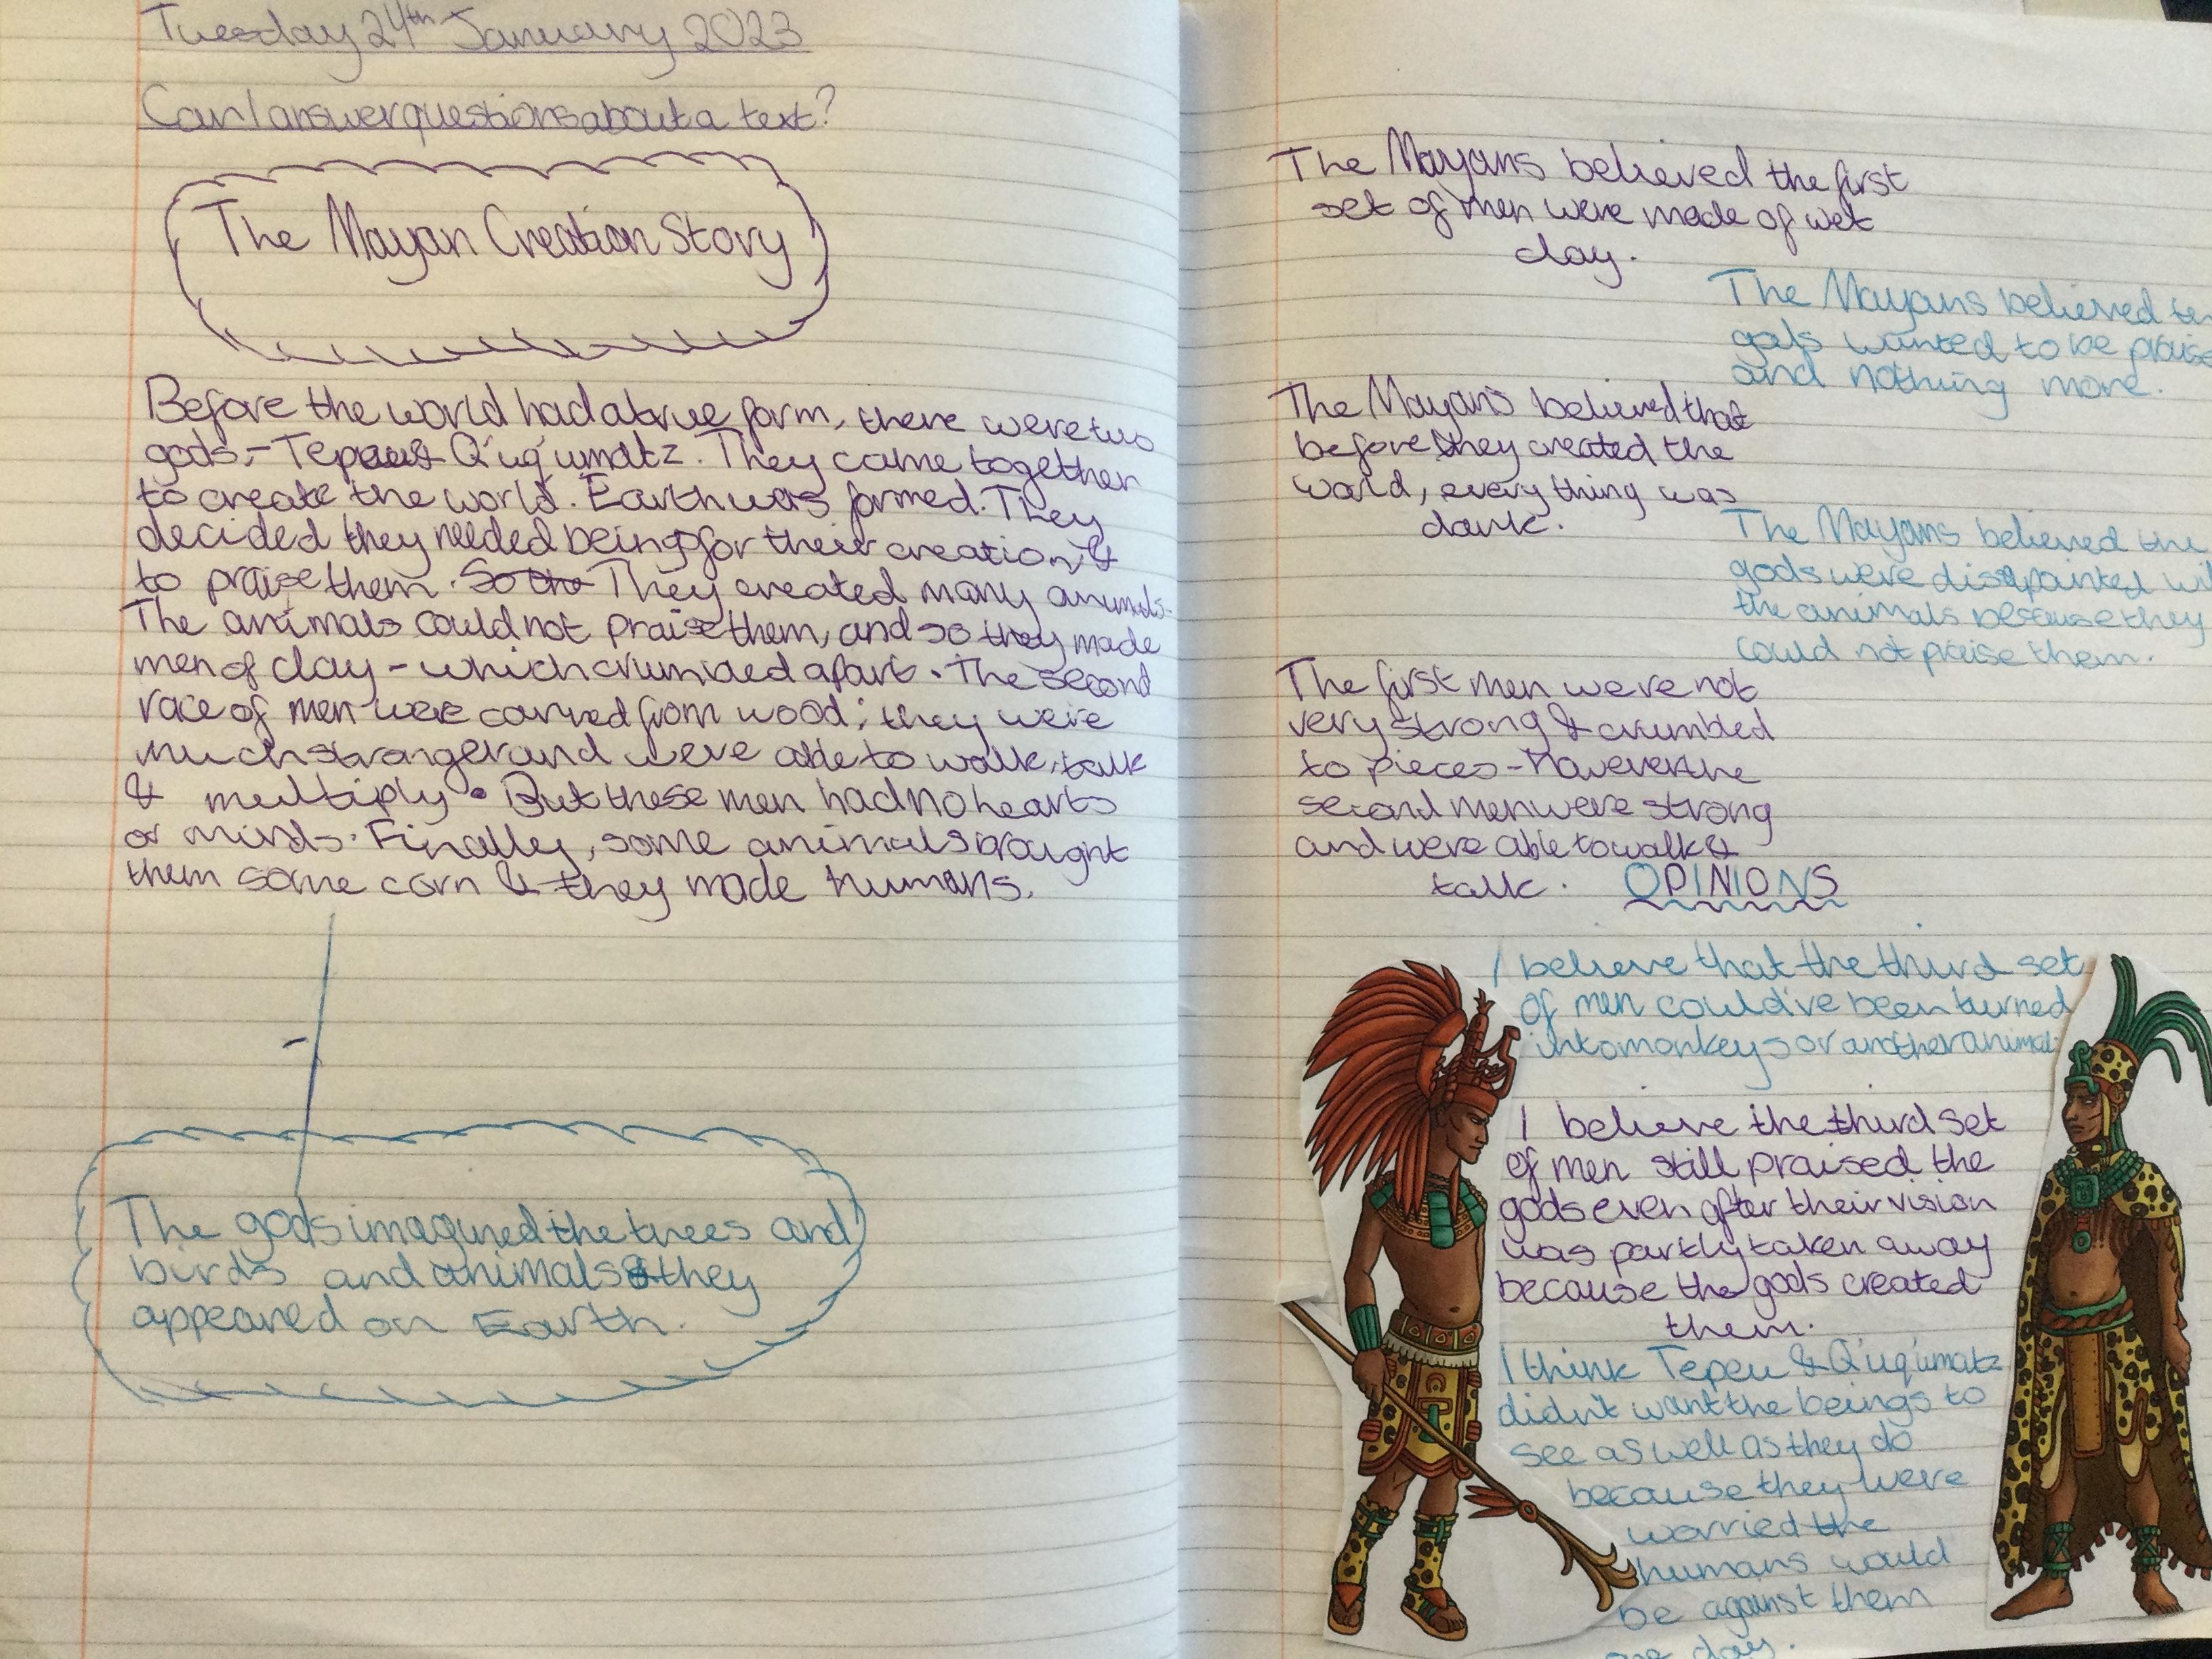 Tuesday 24th January 2023
Can I answer questions about a text?
The Mayan Creation Story
Before the world had a true form, there were two
gods,- Tepeu & Q'uq'umatz. They came together
to create the world. Earth was formed. They
decided they needed beings for their creation, &
to praise them. So the They created many animals.
The animals could not praise them, and so they made
men of clay - which crumbled apart. The second
race of men were carved from wood; they were
much stronger and were able to walk, talk
& multiply. But these men had no hearts
or minds. Finally, some animals brought
them some corn & they made humans.
The gods imagined the trees and
birds and animals & they
appeared on Earth.
The Mayans believed the first
set of men were made of wet
clay.
The Mayans believed
gods wanted to be praise
and nothing more.
The Mayans believed that
before they created the
world, everything was
dark.
The Mayans believed the
gods were disappointed
the animals because they
could not praise them.
The first men were not
very strong & crumbled
to pieces - however the
second men were strong
and were able to walk &
talk.
OPINIONS
I believe that the third set
of men could've been turned
into monkeys or another animal.
I believe the third set
of men still praised the
gods even after their vision
was partly taken away
because the gods created
them.
I think Tepeu & Q'uq'umatz
didn't want the beings to
see as well as they do
because they were
worried the
humans would
be against them
one day.